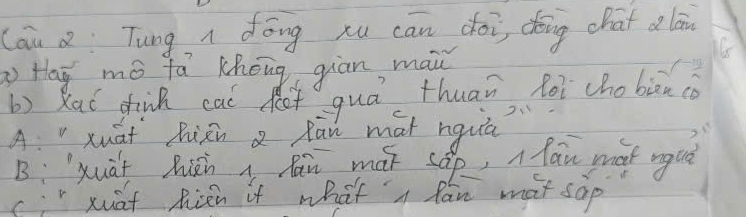 Câu 2: Tung 1 đồng xu cân đối, đồng chất 2 lần
a) Hãy mô tả không gian mẫu
b) Xác định các kết quả thuận lợi cho biến cố
A: "Xuất hiện 2 lần mặt ngửa"
B: "Xuất hiện 1 lần mặt sấp, 1 lần mặt ngửa"
C: "Xuất hiện ít nhất 1 lần mặt sấp"